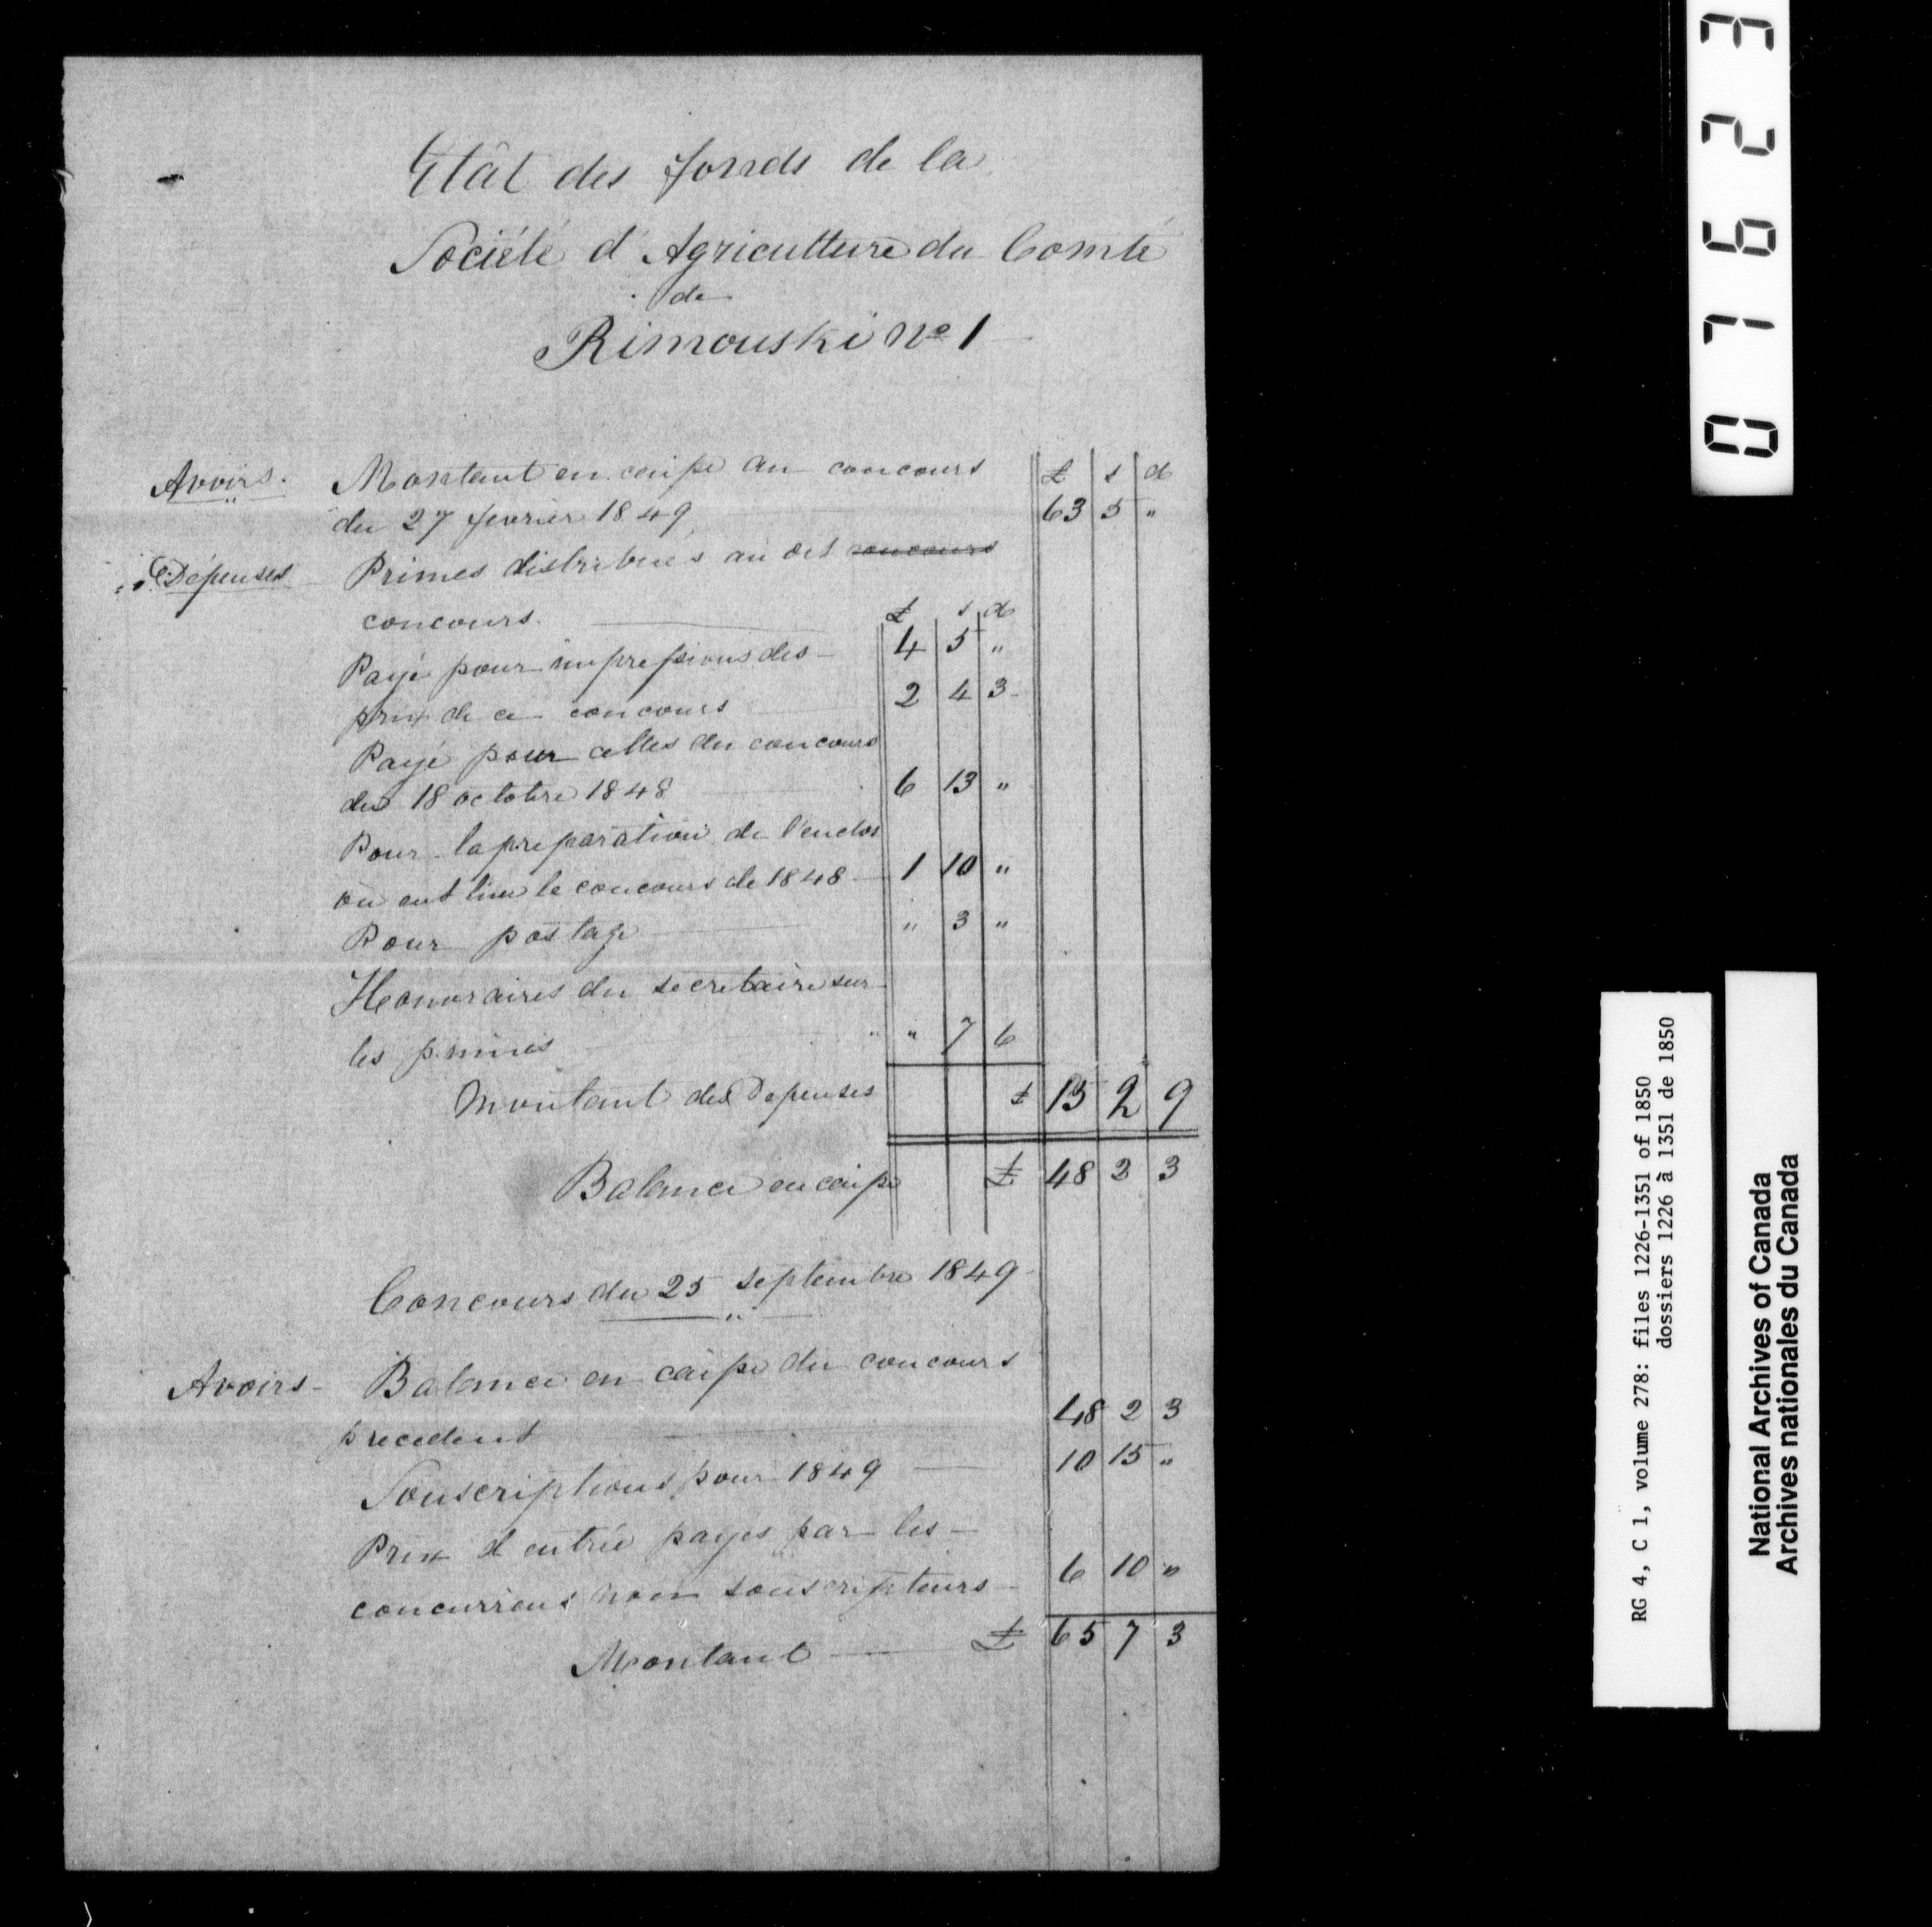 Etât des fonds de la
Société d'Agriculture du Comté
de
Rimouski No 1
Avoirs. Montant en caisse au concours £ s d
du 27 fevrier 1849 63 5 "
Dépenses Primes distribués au dit concours
concours. £ s d
4 5 "
Payé pour impressions des
prix de ce concours 2 4 3
Payé pour celles du concours
du 18 octobre 1848 6 13 "
Pour la preparation de l'enclos
où eut lieu le concours de 1848 1 10 "
Pour postage " 3 "
Honoraires du secretaire sur
les primes " 7 6
Montant des Depenses £ 15 2 9
Balance en caisse £ 48 2 3
Concours du 25 septembre 1849
Avoirs Balance en caisse du concours
precedent 48 2 3
Souscriptions pour 1849 10 15 "
Prix d'entrée payés par les
concurrens non souscripteurs 6 10 "
Montant £ 65 7 3
07623
RG 4, C 1, volume 278: files 1226-1351 of 1850
dossiers 1226 à 1351 de 1850
National Archives of Canada
Archives nationales du Canada